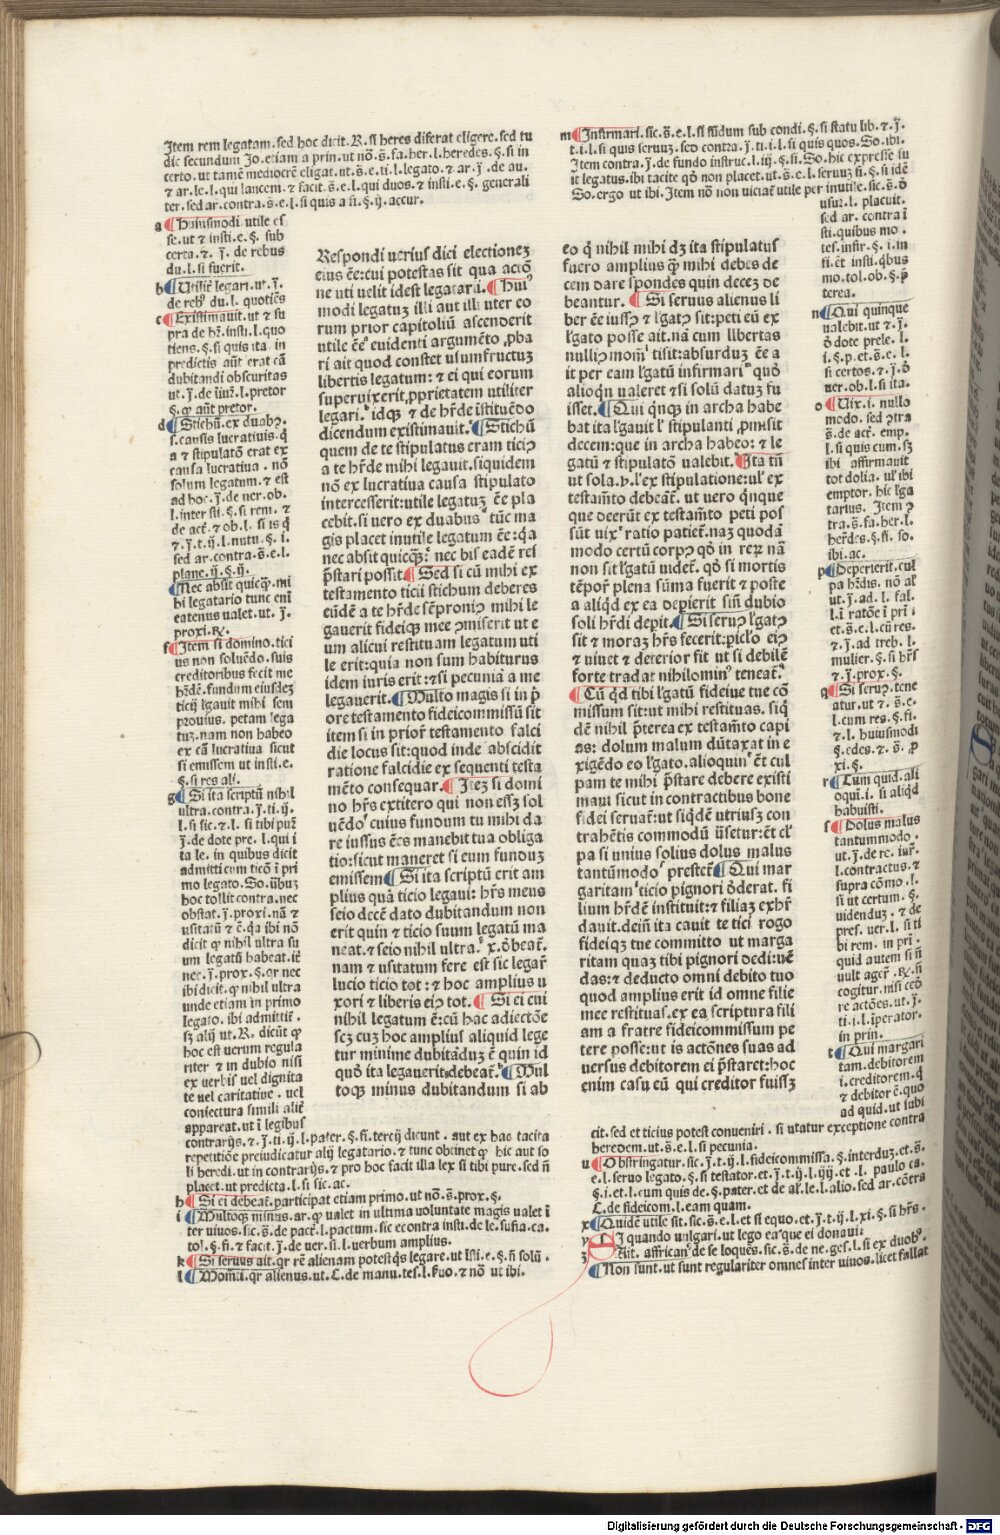 Item rem legatam. sed hoc dicit. R. si heres diferat eligere. sed tu
dic secundum Jo. etiam a prin. ut nō. s̄. fa. her. l. heredes. §. si in
certo. ut tamē mediocrē eligat. ut. s̄. e. ti. l. legato. ⁊ ar. j̄. de au.
⁊ ar. le. l. qui lancem. ⁊ facit. s̄. e. l. qui duos. ⁊ insti. e. §. generali
ter. sed ar. contra. s̄. e. l. si quis a fi. §. ij. accur.
a Huiusmodi utile es
se. ut ⁊ insti. e. §. sub
certa. ⁊. j̄. de rebus
du. l. si fuerit.
b Utilit̄ legari. ut. j̄.
de reb' du. l. quotiēs
c Existimauit. ut ⁊ su
pra de hr̄. insti. l. quo
tiens. §. si quis ita in
predictis aūt erat cā
dubitandi obscuritas
d Stichū. ex duabꝰ.
s. causis lucratiuis. q̄
a ⁊ stipulatō erat ex
causa lucratiua . nō
solum legatum. ⁊ est
ad hoc. j̄. de uer. ob.
sed ar. contra. s̄. e. l.
plane. ij. §. ij.
Nec absit quicq̄. mi
hi legatario tunc eni
eatenus ualet. ut. j̄.
proxi. ꝶ.
f Item si domino. tici
us non soluēdo. suis
creditoribus fecit me
hr̄dē. fundum eiusdeꝫ
ticij lgauit mihi sem
pronius. petam lega
tuꝫ. nam non habeo
ex cā lucratiua sicut
si emissem ut insti. e.
§. si res ali.
g Si ita scriptū nihil
ultra. contra. j̄. ti. ij.
l. si sic. ⁊. l. si tibi pur̄
j̄. de dote pre. l. qui i
ta le. in quibus dicit
admitti cum ticō i pri
mo legato. So. ūbuꝫ
hoc tollit contra. nec
obstat. j̄. proxi. nā ⁊
usitatū ⁊ ē. q̄a ibi nō
dicit ꝙ nihil ultra su
um legatū habeat. it̄
nec. j̄. prox. §. qr nec
ibi dicit. ꝙ nihil ultra
unde etiam in primo
legato. ibi admittit̄.
sꝫ alij ut. R. dicūt ꝙ
hoc est uerum regula
riter ⁊ in dubio nisi
ex uerbis uel dignita
te uel caritatiue . uel
coniectura simili alit̄
appareat. ut i legibus
contrarijs. ⁊. j̄. ti. ij. l. pater. §. fi. tercij dicunt . aut ex hac tacita
repetitiōe preiudicatur alij legatario. ⁊ tunc obtinet ꝙ hic aut so
li heredi. ut in contrarijs. ⁊ pro hoc facit illa lex si tibi pure. sed ñ
placet. ut predicta. l. si sic. ac.
h Si ei debeat̄. participat etiam primo. ut nō. s̄. prox. §.
i Multoꝙ minus. ar. ꝙ ualet in ultima uoluntate magis ualet i
ter uiuos. sic. s̄. de pact̄. l. pactum. sic econtra insti. de le. fusia. ca.
tol. §. fi. ⁊ facit. j̄. de uer. si. l. uerbum amplius.
k Si seruus ait. qr rē alienam potestq̄s legare. ut īsti. e. §. ñ solū .
l Mom̄ti. qr alienus. ut. C. de manu. tes. l. seruo. ⁊ nō ut ibi.
Respondi uerius dici electioneꝫ
eius ēē: cui potestas sit qua actō
ne uti uelit idest legatarā. Huiꝰ
modi legatuꝫ illi aut illi uter eo
rum prior capitoliū ascenderit
utile ēē euidenti argumēto ꝓba
ri ait quod constet usumfructuꝫ
libertis legatum: ⁊ ei qui eorum
superuixerit, ꝓprietatem utiliter
legari. idqꝫ ⁊ de hr̄de īstituēdo
dicendum existimauit. Stichū
quem de te stipulatus eram ticiꝰ
a te hr̄de mihi legauit. siquidem
nō ex lucratiua causa stipulato
intercesserit: utile legatuꝫ ēē pla
cebit. si uero ex duabus tūc ma
gis placet inutile legatum ēē: q̄a
nec absit quicqꝫ: nec bis eadē res
p̄stari possit. Sed si cū mihi ex
testamento ticii stichum deberes
eūdē a te hr̄de sēproniꝰ mihi le
gauerit fideiqꝫ mee ꝯmiserit ut e
um alicui restituam legatum uti
le erit: quia non sum habiturus
idem iuris erit: ⁊ si pecuniā a me
legauerit. Multo magis si in p̄
ore testamento fideicommissū sit
item si in prior̄ testamento falci
die locus sit: quod inde abscidit
ratione falcidie ex sequenti testa
mēto consequar. Iteꝫ si domi
no hr̄s extitero qui non esſꝫ sol
uēdo cuius fundum tu mihi da
re iussus ēēs manebit tua obliga
tio: sicut maneret si eum funduꝫ
emissem Si ita scriptū erit am
plius quā ticio legaui: hr̄s meus
seio decē dato dubitandum non
erit quin ⁊ ticio suum legatū ma
neat. ⁊ seio nihil ultra. x. ō beat̄.
nam ⁊ usitatum fere est sic legar̄
lucio ticio tot : ⁊ hoc amplius u
xori ⁊ liberis eiꝰ tot. Si ei cui
nihil legatum ē: cū hac adiectōe
scꝫ cuꝫ hoc amplius aliquid lege
tur minime dubitāduꝫ ē quin id
quō ita legauerit: debeat̄. Mul
toqꝫ minus dubitandum si ab
eo q̄ nihil mihi dꝫ ita stipulatus
fuero amplius ꝙ mihi debes de
cem dare spondes quin deceꝫ de
beantur. Si seruus alienus li
ber ēē iussꝰ ⁊ lgatꝰ sit: peti eū ex
lgato posse ait. nā cum libertas
nulliꝰ mom̄ tisit: absurduꝫ ēē a
it per eam lgatū infirmari quō
alioqn ualeret ⁊ si solū datuꝫ fu
isset. Qui q̄nqꝫ in archa habe
bat ita lgauit l' stipulanti ꝓmisit
decem: que in archa habeo: ⁊ le
gatū ⁊ stipulatō ualebit. Ita tn̄
ut sola. v. l' ex stipulatione: ul' ex
testam̄to debeāt̄. ut uero q̄nque
que deerūt ex testam̄to peti pos
sūt uix ratio patiet̄. naꝫ quodā
modo certū corpꝰ qō in reꝝ nā
non sit lgatū uidet̄. qō si mortis
tēpor̄ plena sūma fuerit ⁊ poste
a aliq̄d ex ea depierit sin̄ dubio
soli hr̄di depit. Si seruꝰ lgatꝰ
sit ⁊ moraꝫ hr̄s fecerit: piclo eiꝰ
⁊ uiuet ⁊ deterior fit ut si debilē
forte tradat nihilominꝰ teneat̄.
Cū q̄d tibi lgatū fideiue tue cō
missum sit: ut mihi restituas. siq̄
dē nihil p̄terea ex testam̄to capi
as: dolum malum dūtaxat in e
xigēdo eo lgato. alioquin ēt cul
pam te mihi p̄stare debere existi
maui sicut in contractibus bone
fidei seruat̄: ut siqdē utriusꝫ con
trahētis commodū ūsetur: ēt cl'
pa si unius solius dolus malus
tantūmodo prestet̄ Qui mar
garitam ticio pignori ōderat. fi
lium hr̄dē instituit: ⁊ filiaꝫ exhr̄
dauit. deiñ ita cauit te tici rogo
fideiqꝫ tue committo ut marga
ritam quaꝫ tibi pignori dedi: uē
das: ⁊ deducto omni debito tuo
quod amplius erit id omne filie
mee restituas. ex ea scriptura fili
am a fratre fideicommissum pe
tere posse: ut is actōnes suas ad
uersus debitorem ei p̄staret: hoc
enim casu eū qui creditor fuisꝫ
m Infirmari. sic. s̄. e. l. si fūdum sub condi. §. si statu lib. ⁊. j̄.
t. i. l. si quis seruuꝫ. sed contra. j̄. ti. i. l. si quis quos. So. ibi.
Item contra. j̄. de fundo instruc. l. iij. §. fi. So. hic expresse fu
it legatus. ibi tacite qō non placet. ut. s̄. e. l. seruuꝫ fi. §. si idē
So. ergo ut ibi. Item nō non uiciat̄ utile per inutile. sic. s̄. ō
usu: l. placuit.
sed ar. contra i
sti. quibus mo .
tes. infir. §. i. in
fi. ēt insti. q̄bus
mo. tol. ob. §. p̄
terea.
n Qui quinque
ualebit. ut ⁊. j̄.
ō dote prele. l.
i. §. p. et. s̄. e. l.
si certos. ⁊. j̄. ō
uer. ob. l. si ita.
o Uix. i. nullo
modo. sed ꝯtra
s̄. de act̄. emp.
l. si quis cum. sꝫ
ibi affirmauit
tot dolia. ul' ibi
emptor. hic lga
tarius. Item ꝯ
tra. s̄. fa. her. l.
her̄des. §. fi. so.
ibi. ac.
p Deperierit. cul
pa hr̄dis. nō al'
ut. j̄. ad. l. fal.
l. i ratōe i pri
et. s̄. e. l. cū res.
⁊. j̄. ad treb. l.
mulier. §. si hr̄s
⁊. j̄. prox. §.
q Si seruꝰ. tene
atur. ut ⁊. s̄. e.
l. cum res. §. fi.
⁊. l. huiusmodi
xi. §.
r Cum quid. ali
oqui. i. si aliq̄d
habuisti.
s Dolus malus
tantummodo .
ut. j̄. de re. iur̄.
l. contractus. ⁊
supra cōmo. l.
si ut certum. §.
uidenduꝫ . ⁊ de
pres. uer. l. si ti
bi rem. in pri .
quid autem si ñ
uult ager̄. ꝶ. ñ
cogitur. nisi ced̄
re actōes. ut. j̄.
ti. i. l. iperator.
in prin.
t Qui margari
tam. debitorem
i. creditorem. q̄
⁊ debitor ē. quo
ad quid. ut subi
cit. sed et ticius potest conueniri . si utatur exceptione contra
heredem. ut. s̄. e. l. si pecunia.
u Obstringatur. sic. j̄. t. ij. l. fideicommissa. §. interduꝫ. et. s̄.
e. l. seruo legato. §. si testator. et. j̄. t. ij. l. iij. et .l. paulo ca.
§. i. et. l. cum quis de. §. pater. et de al'. le. l. alio. sed ar. cōtra
C. de fideicom. l. eam quam.
x Quidē utile sit. sic. s̄. e. l. et si equo. et. j̄. t. ij. l. xi. §. si hr̄s .
y SI quando uulgari. ut lego ea que ei donaui:
z Ait. affrican' de se loquēs. sic. s̄. de ne. ges. l. si ex duobꝰ.
Non sunt. ut sunt regulariter omnes inter uiuos. licet fallat
Digitalisierung gefördert durch die Deutsche Forschungsgemeinschaft - DFG